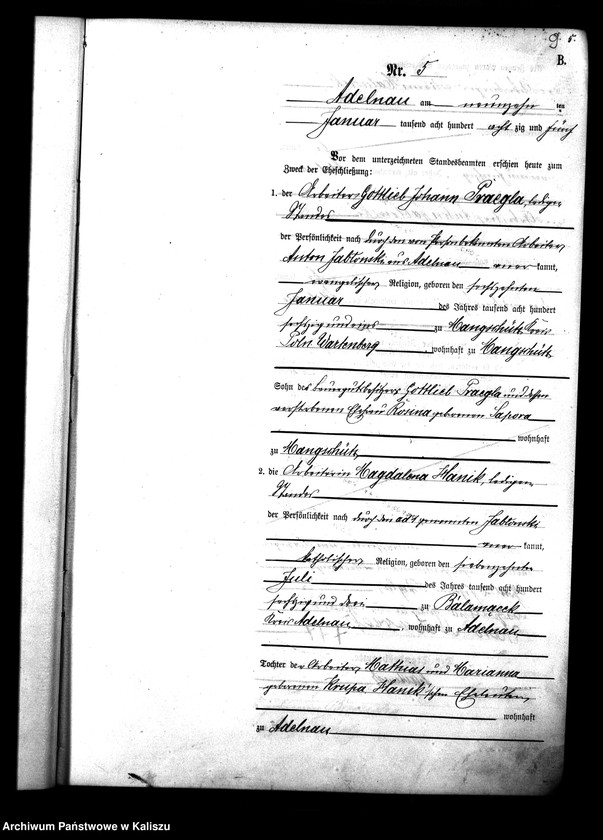 9 5.
B.
Nr. 5
Adelnau am neunzehn ten
Januar tausend acht hundert acht zig und fünf
Vor dem unterzeichneten Standesbeamten erschien heute zum
Zweck der Eheschließung:
1. der Arbeiter Gottlieb Johann Praegla, ledigen
Standes
der Persönlichkeit nach durch den von Person bekannten Arbeiter
Anton Jabłonski aus Adelnau aner kannt,
evangelischer Religion, geboren den sechszehnten
Januar des Jahres tausend acht hundert
sechszig und eins zu Mangschütz Kreis
Poln Wartenberg, wohnhaft zu Mangschütz
Sohn des Bauergutsbesitzers Gottlieb Praegla und dessen
verstorbenen Ehefrau Rosina geborenen Sapora
wohnhaft
zu Mangschütz
2. die Arbeiterin Magdalena Hanik, ledigen
Standes
der Persönlichkeit nach durch den ad 1 genannten Jabłonski
aner kannt,
katholischer Religion, geboren den siebenzehnten
Juli des Jahres tausend acht hundert
sechszig und drei zu
Kreis Adelnau, wohnhaft zu Adelnau
Tochter der Arbeiter Mathias und Marianna
geborenen Krupa Hanik'schen Eheleute,
wohnhaft
zu Adelnau
Archiwum Państwowe w Kaliszu